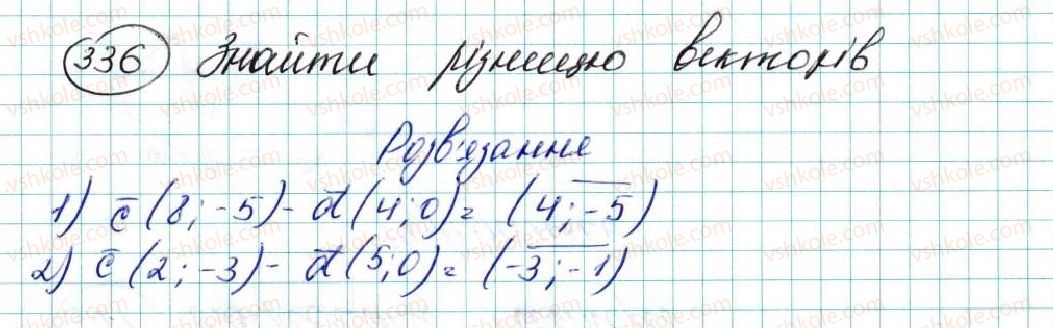 336 Знайти різницю векторів
Розв'язання
1) c̄ (8; -5) - d̄ (4; 0) = (4; -5)
2) c̄ (2; -3) - d̄ (5; 0) = (-3; -1)